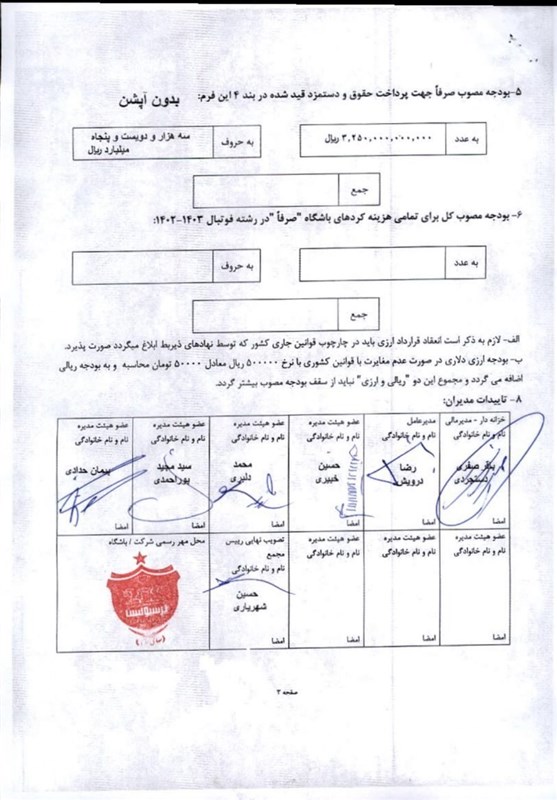 ۵-بودجه مصوب صرفاً جهت پرداخت حقوق و دستمزد قید شده در بند ۴ این فرم: بدون آپشن
به عدد
۳,۲۵۰,۰۰۰,۰۰۰,۰۰۰ ریال
به حروف
سه هزار و دویست و پنجاه
میلیارد ریال
جمع
۶- بودجه مصوب کل برای تمامی هزینه کردهای باشگاه "صرفاً" در رشته فوتبال ۱۴۰۳-۱۴۰۲:
به عدد
به حروف
جمع
الف- لازم به ذکر است انعقاد قرارداد ارزی باید در چارچوب قوانین جاری کشور که توسط نهادهای ذیربط ابلاغ میگردد صورت پذیرد.
ب- بودجه ارزی دلاری در صورت عدم مغایرت با قوانین کشوری با نرخ ۵۰۰۰۰۰ ریال معادل ۵۰۰۰۰ تومان محاسبه و به بودجه ریالی
اضافه می گردد و مجموع این دو "ریالی و ارزی" نباید از سقف بودجه مصوب بیشتر گردد.
۸- تاییدات مدیران:
خزانه دار - مدیرمالی
نام و نام خانوادگی
صفری
دستجردی
امضا
مدیرعامل
نام و نام خانوادگی
رضا
درویش
امضا
عضو هیئت مدیره
نام و نام خانوادگی
حسین
خبیری
امضا
عضو هیئت مدیره
نام و نام خانوادگی
محمد
دلیری
امضا
عضو هیئت مدیره
نام و نام خانوادگی
سید مجید
پوراحمدی
امضا
عضو هیئت مدیره
نام و نام خانوادگی
پیمان حدادی
امضا
عضو هیئت مدیره
نام و نام خانوادگی
امضا
عضو هیئت مدیره
نام و نام خانوادگی
امضا
عضو هیئت مدیره
نام و نام خانوادگی
امضا
تصویب نهایی رییس
مجمع
نام و نام خانوادگی
حسین
شهریاری
امضا
محل مهر رسمی شرکت / باشگاه
پرسپولیس
صفحه ۲